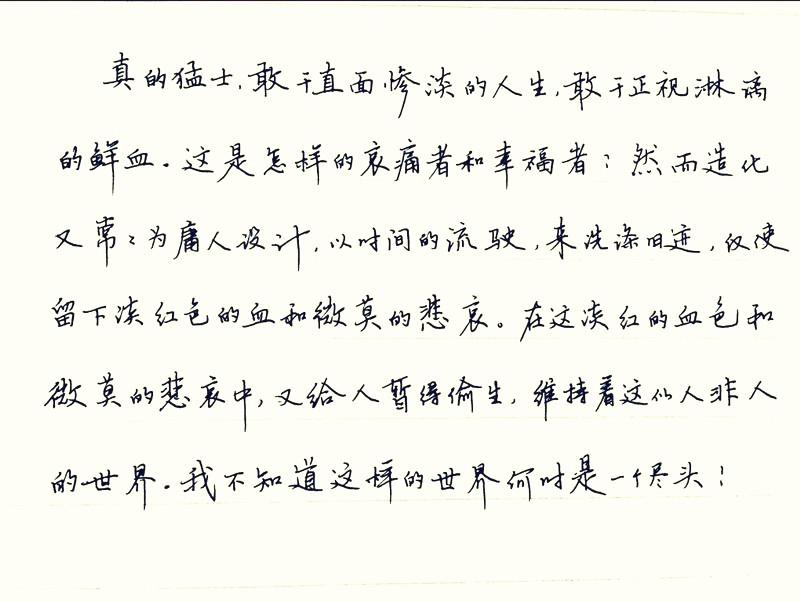 真的猛士,敢于直面惨淡的人生,敢于正视淋漓
的鲜血。这是怎样的哀痛者和幸福者!然而造化
又常常为庸人设计,以时间的流驶,来洗涤旧迹,仅使
留下淡红色的血和微莫的悲哀。在这淡红的血色和
微莫的悲哀中,又给人暂得偷生,维持着这似人非人
的世界。我不知道这样的世界何时是一个尽头!